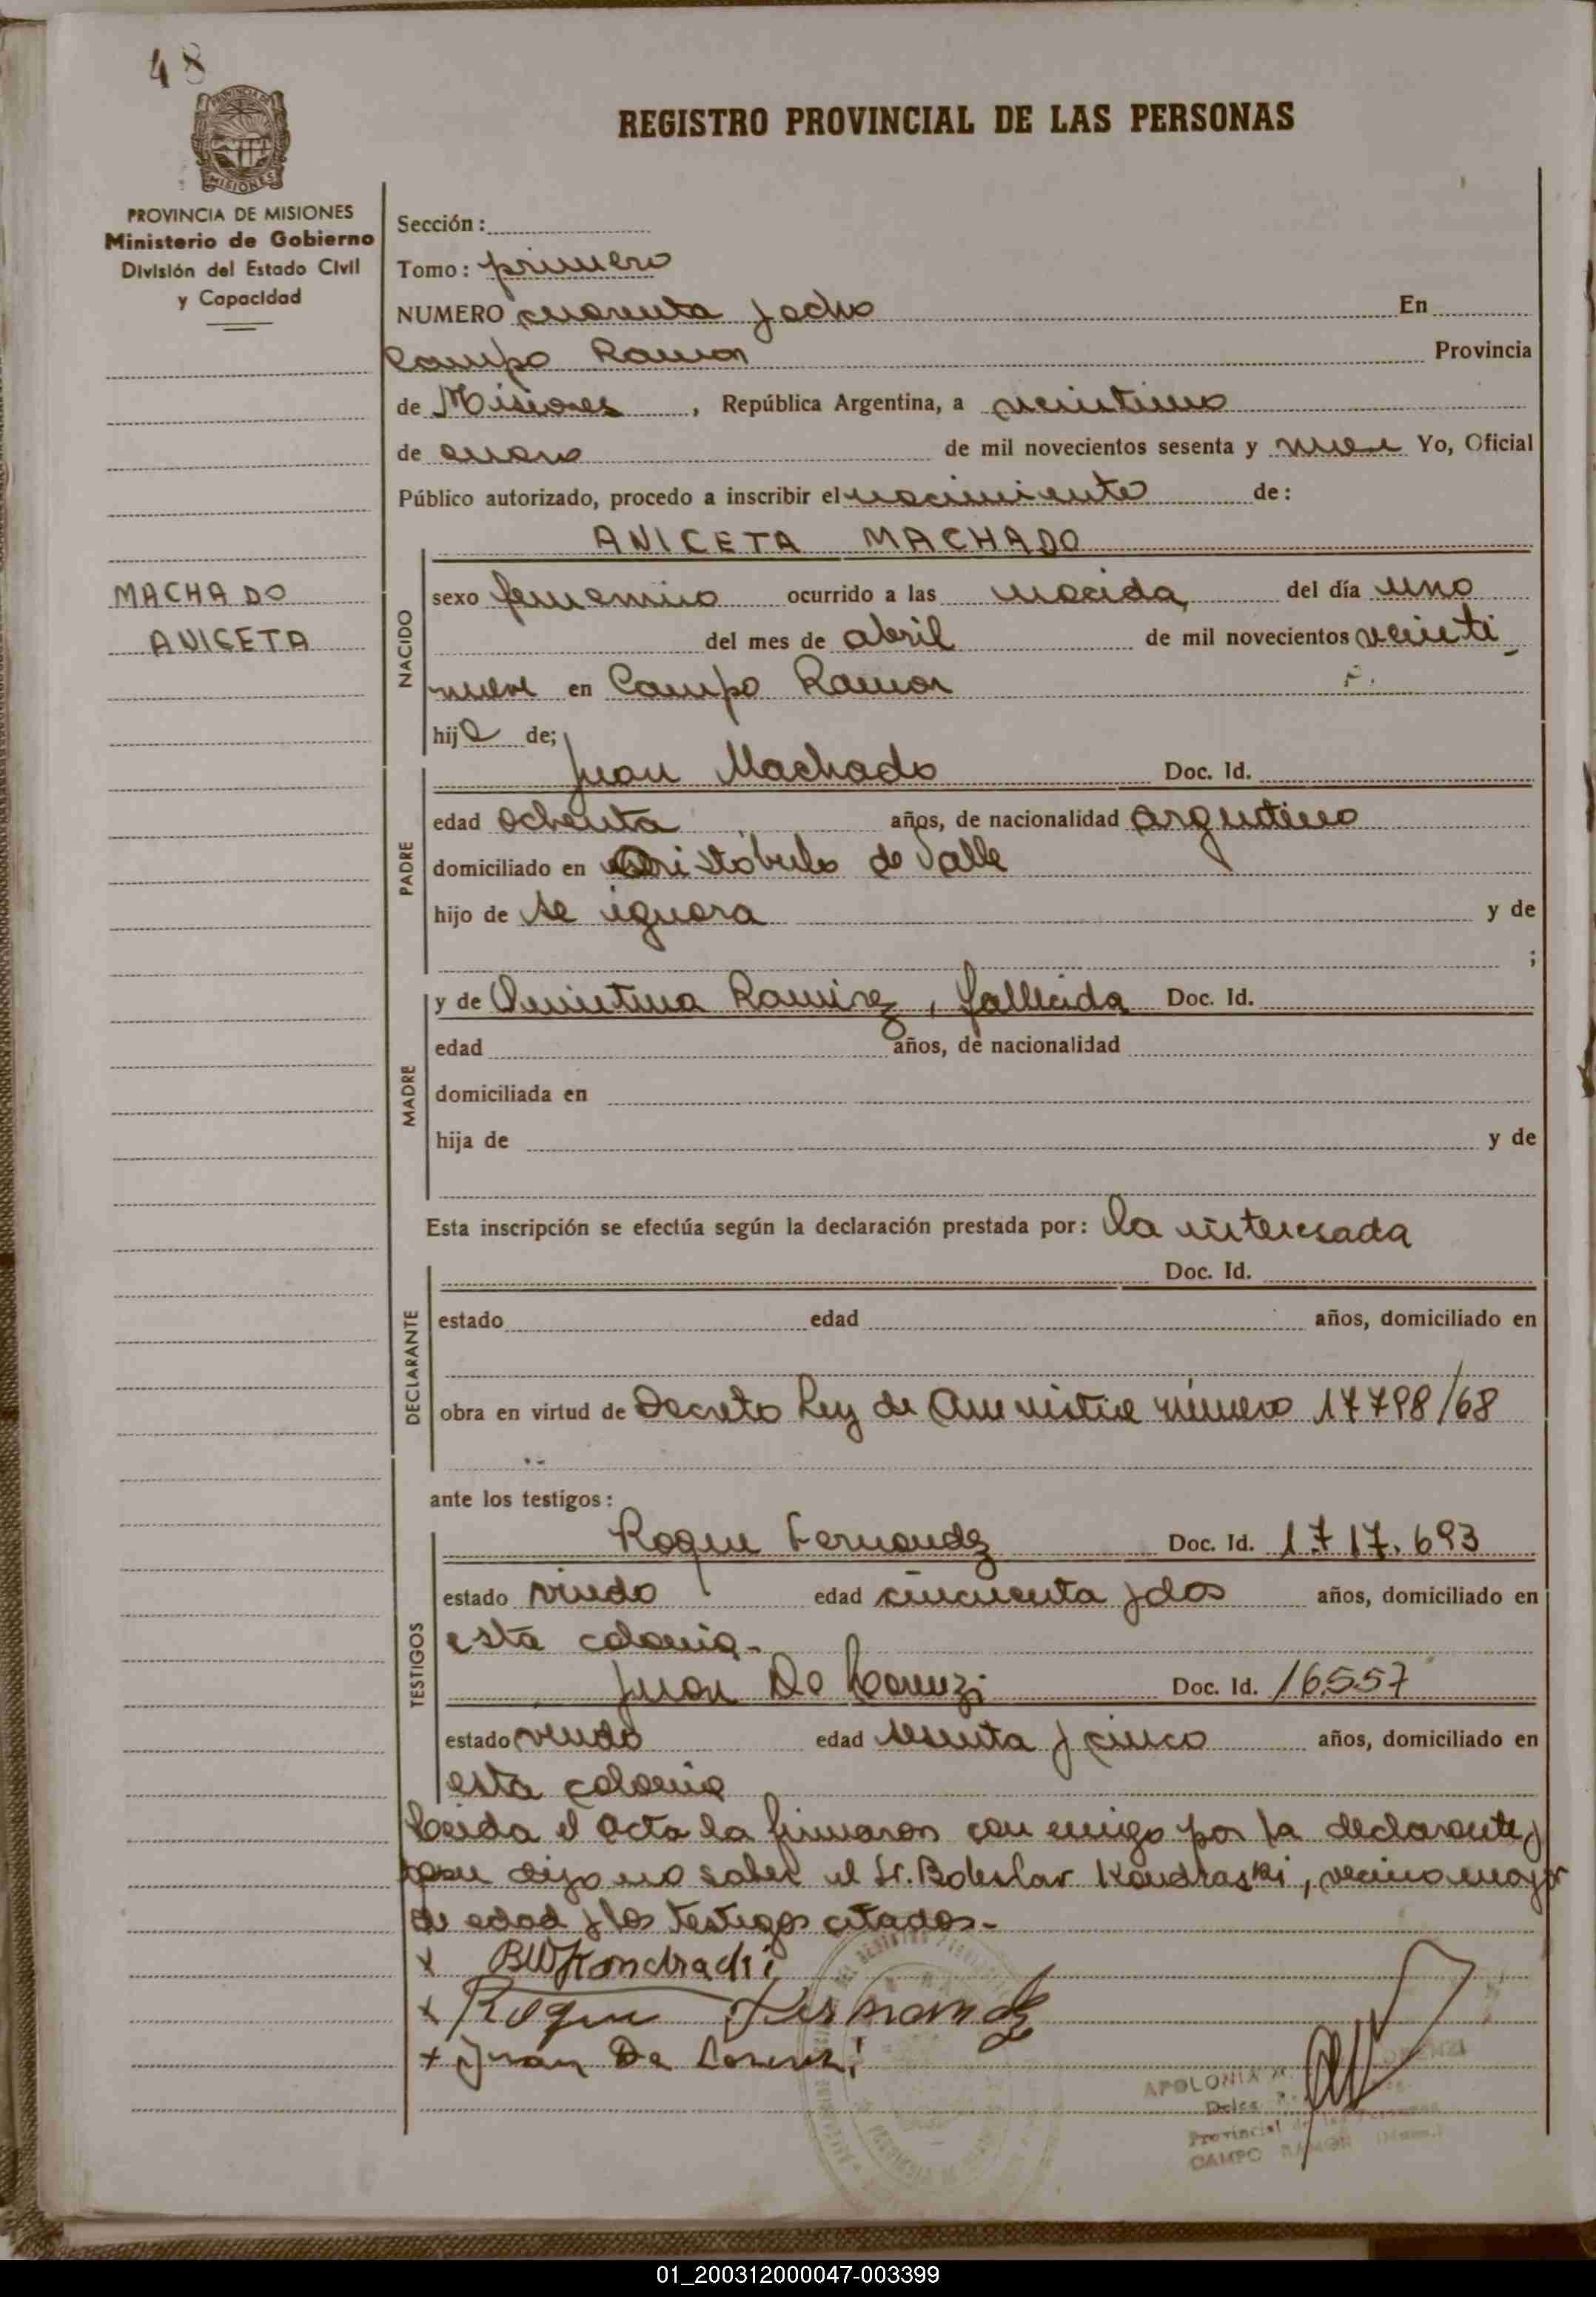 48
REGISTRO PROVINCIAL DE LAS PERSONAS
PROVINCIA DE MISIONES
MISIONES
PROVINCIA DE MISIONES
Ministerio de Gobierno
División del Estado Civil
y Capacidad
Sección:
Tomo: primero
NUMERO cuarenta y ocho En
Campo Ramon Provincia
de Misiones, República Argentina, a veintiuno
de enero de mil novecientos sesenta y nueve Yo, Oficial
Público autorizado, procedo a inscribir el nacimiento de:
ANICETA MACHADO
MACHADO
ANICETA
NACIDO
sexo femenino ocurrido a las nacida, del día uno
del mes de abril de mil novecientos veinti
nueve en Campo Ramon
hija de;
PADRE
Juan Machado Doc. Id.
edad ochenta años, de nacionalidad argentino
domiciliado en Aristóbulo de Valle
hijo de se ignora y de
;
MADRE
y de Quintina Ramirez, fallecida Doc. Id.
edad años, de nacionalidad
domiciliada en
hija de y de
Esta inscripción se efectúa según la declaración prestada por: la interesada
DECLARANTE
Doc. Id.
estado edad años, domiciliado en
obra en virtud de Decreto Ley de Amnistia número 17798/68
ante los testigos:
TESTIGOS
Roque Fernandez Doc. Id. 1717.693
estado viudo edad cincuenta y dos años, domiciliado en
esta colonia.-
Juan De Lorenzi Doc. Id. 16557
estado viudo edad sesenta y cinco años, domiciliado en
esta colonia
Leida el acta la firmaron con migo por la declarante y
quen dijo no saber el Sr. Boleslar Kondraski, vecino mayor
de edad y los testigos citados.-
x BWKondracki
x Roque Fernandez
+ Juan De Lorenzi
APOLONIA
Provincial de las Personas
CAMPO RAMON
01_200312000047-003399